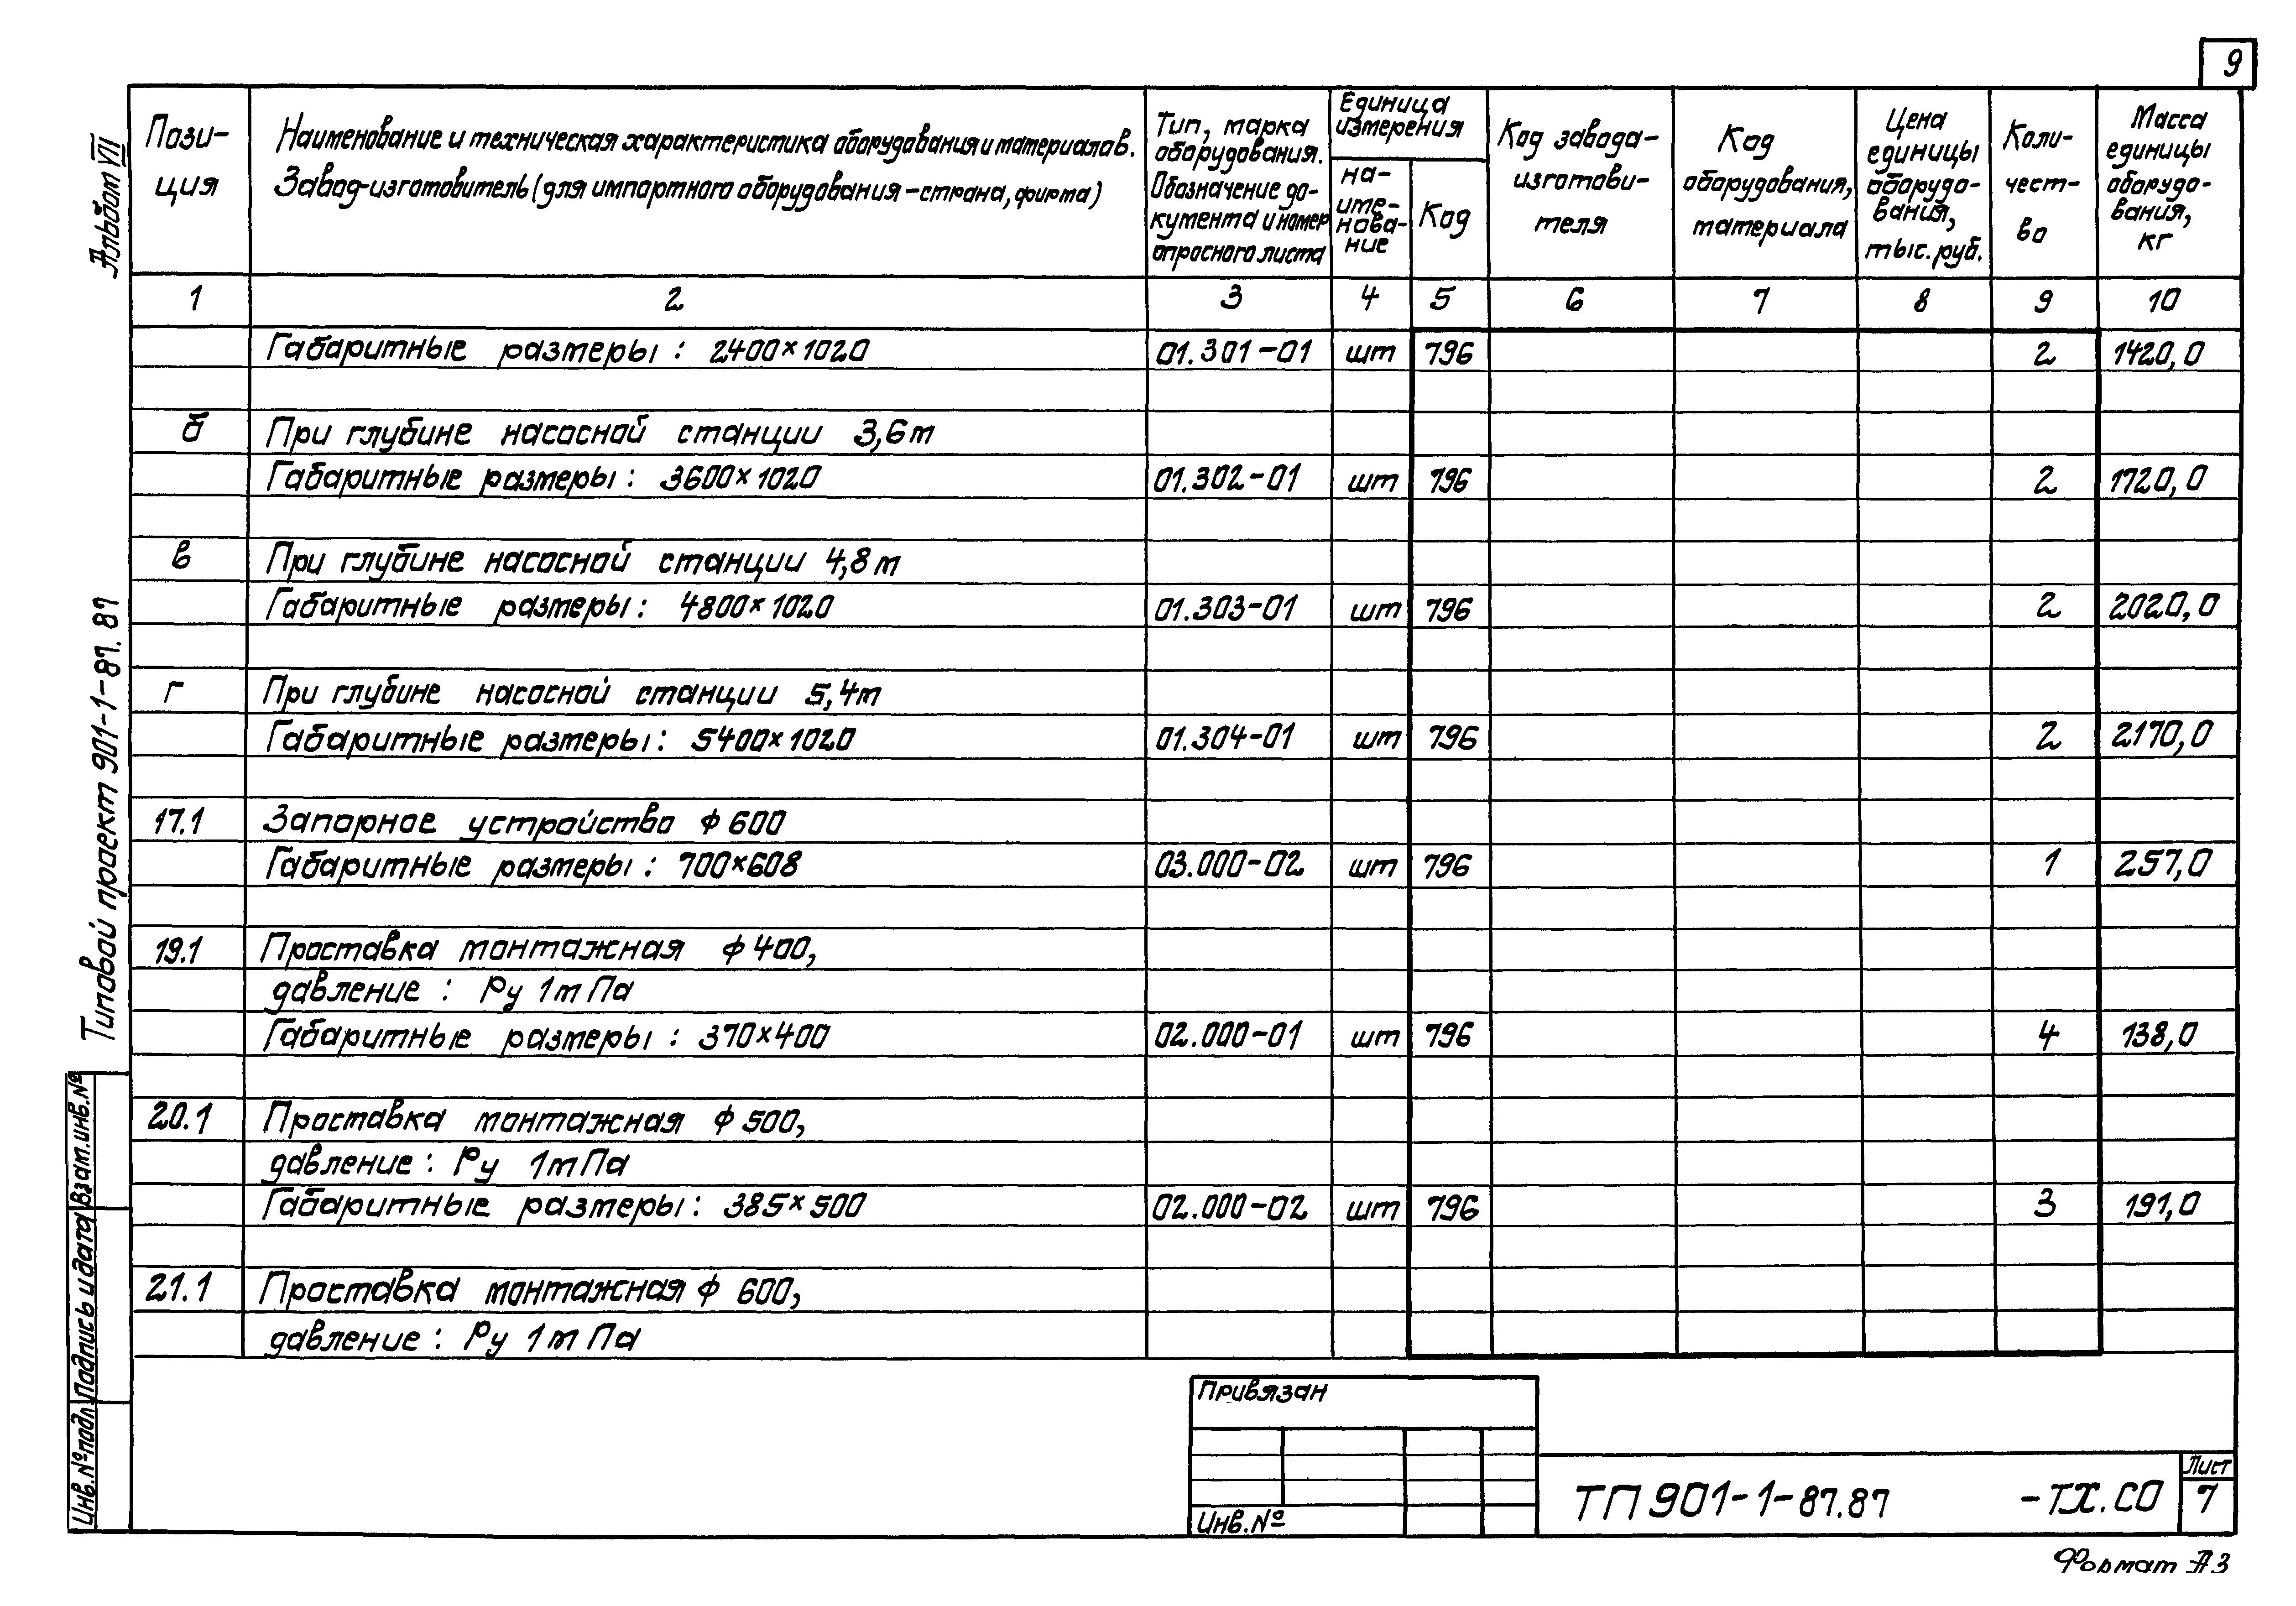 9
Пози-
ция
Наименование и техническая характеристика оборудования и материалов.
Завод-изготовитель (для импортного оборудования – страна, фирма)
Тип, марка
оборудования.
Обозначение до-
кумента и номер
опросного листа
Единица
измерения
на-
име-
нова-
ние
Код
Код завода-
изготови-
теля
Код
оборудования,
материала
Цена
единицы
оборудо-
вания,
тыс. руб.
Коли-
чест-
во
Масса
единицы
оборудо-
вания,
кг
1 2 3 4 5 6 7 8 9 10
Габаритные размеры: 2400×1020 01.301-01 шт 796 2 1420,0
б При глубине насосной станции 3,6м
Габаритные размеры: 3600×1020 01.302-01 шт 796 2 1720,0
в При глубине насосной станции 4,8м
Габаритные размеры: 4800×1020 01.303-01 шт 796 2 2020,0
г При глубине насосной станции 5,4м
Габаритные размеры: 5400×1020 01.304-01 шт 796 2 2170,0
17.1 Запорное устройство ф 600
Габаритные размеры: 700×608 03.000-02 шт 796 1 257,0
19.1 Проставка монтажная ф 400,
давление: Ру 1м Па
Габаритные размеры: 370×400 02.000-01 шт 796 4 138,0
20.1 Проставка монтажная ф 500,
давление: Ру 1м Па
Габаритные размеры: 385×500 02.000-02 шт 796 3 191,0
21.1 Проставка монтажная ф 600,
давление: Ру 1м Па
Альбом VII
Типовой проект 901-1-87.87
Взам.инв.№
Подпись и дата
Инв.№подл
Привязан
Инв.№
ТП 901-1-87.87 -ТХ.СО
Лист
7
Формат А3